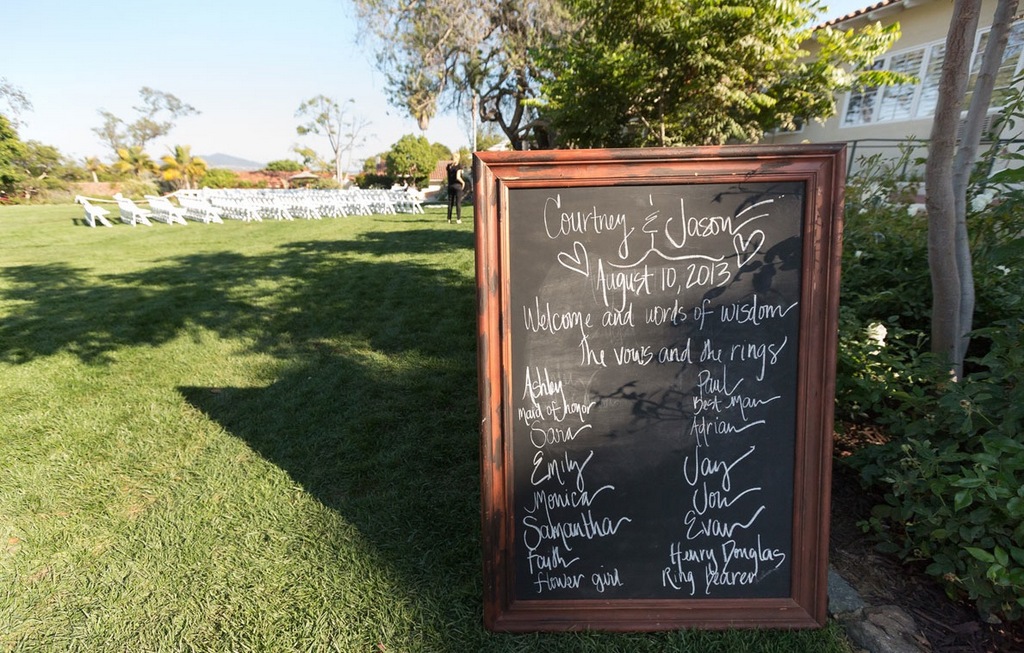 Courtney & Jason
August 10, 2013
Welcome and words of wisdom
the vows and the rings
Ashley
Maid of honor
Sara
Emily
Monica
Samantha
Faith
flower girl
Paul
Best Man
Adrian
Jay
Jon
Evan
Henry Douglas
Ring Bearer